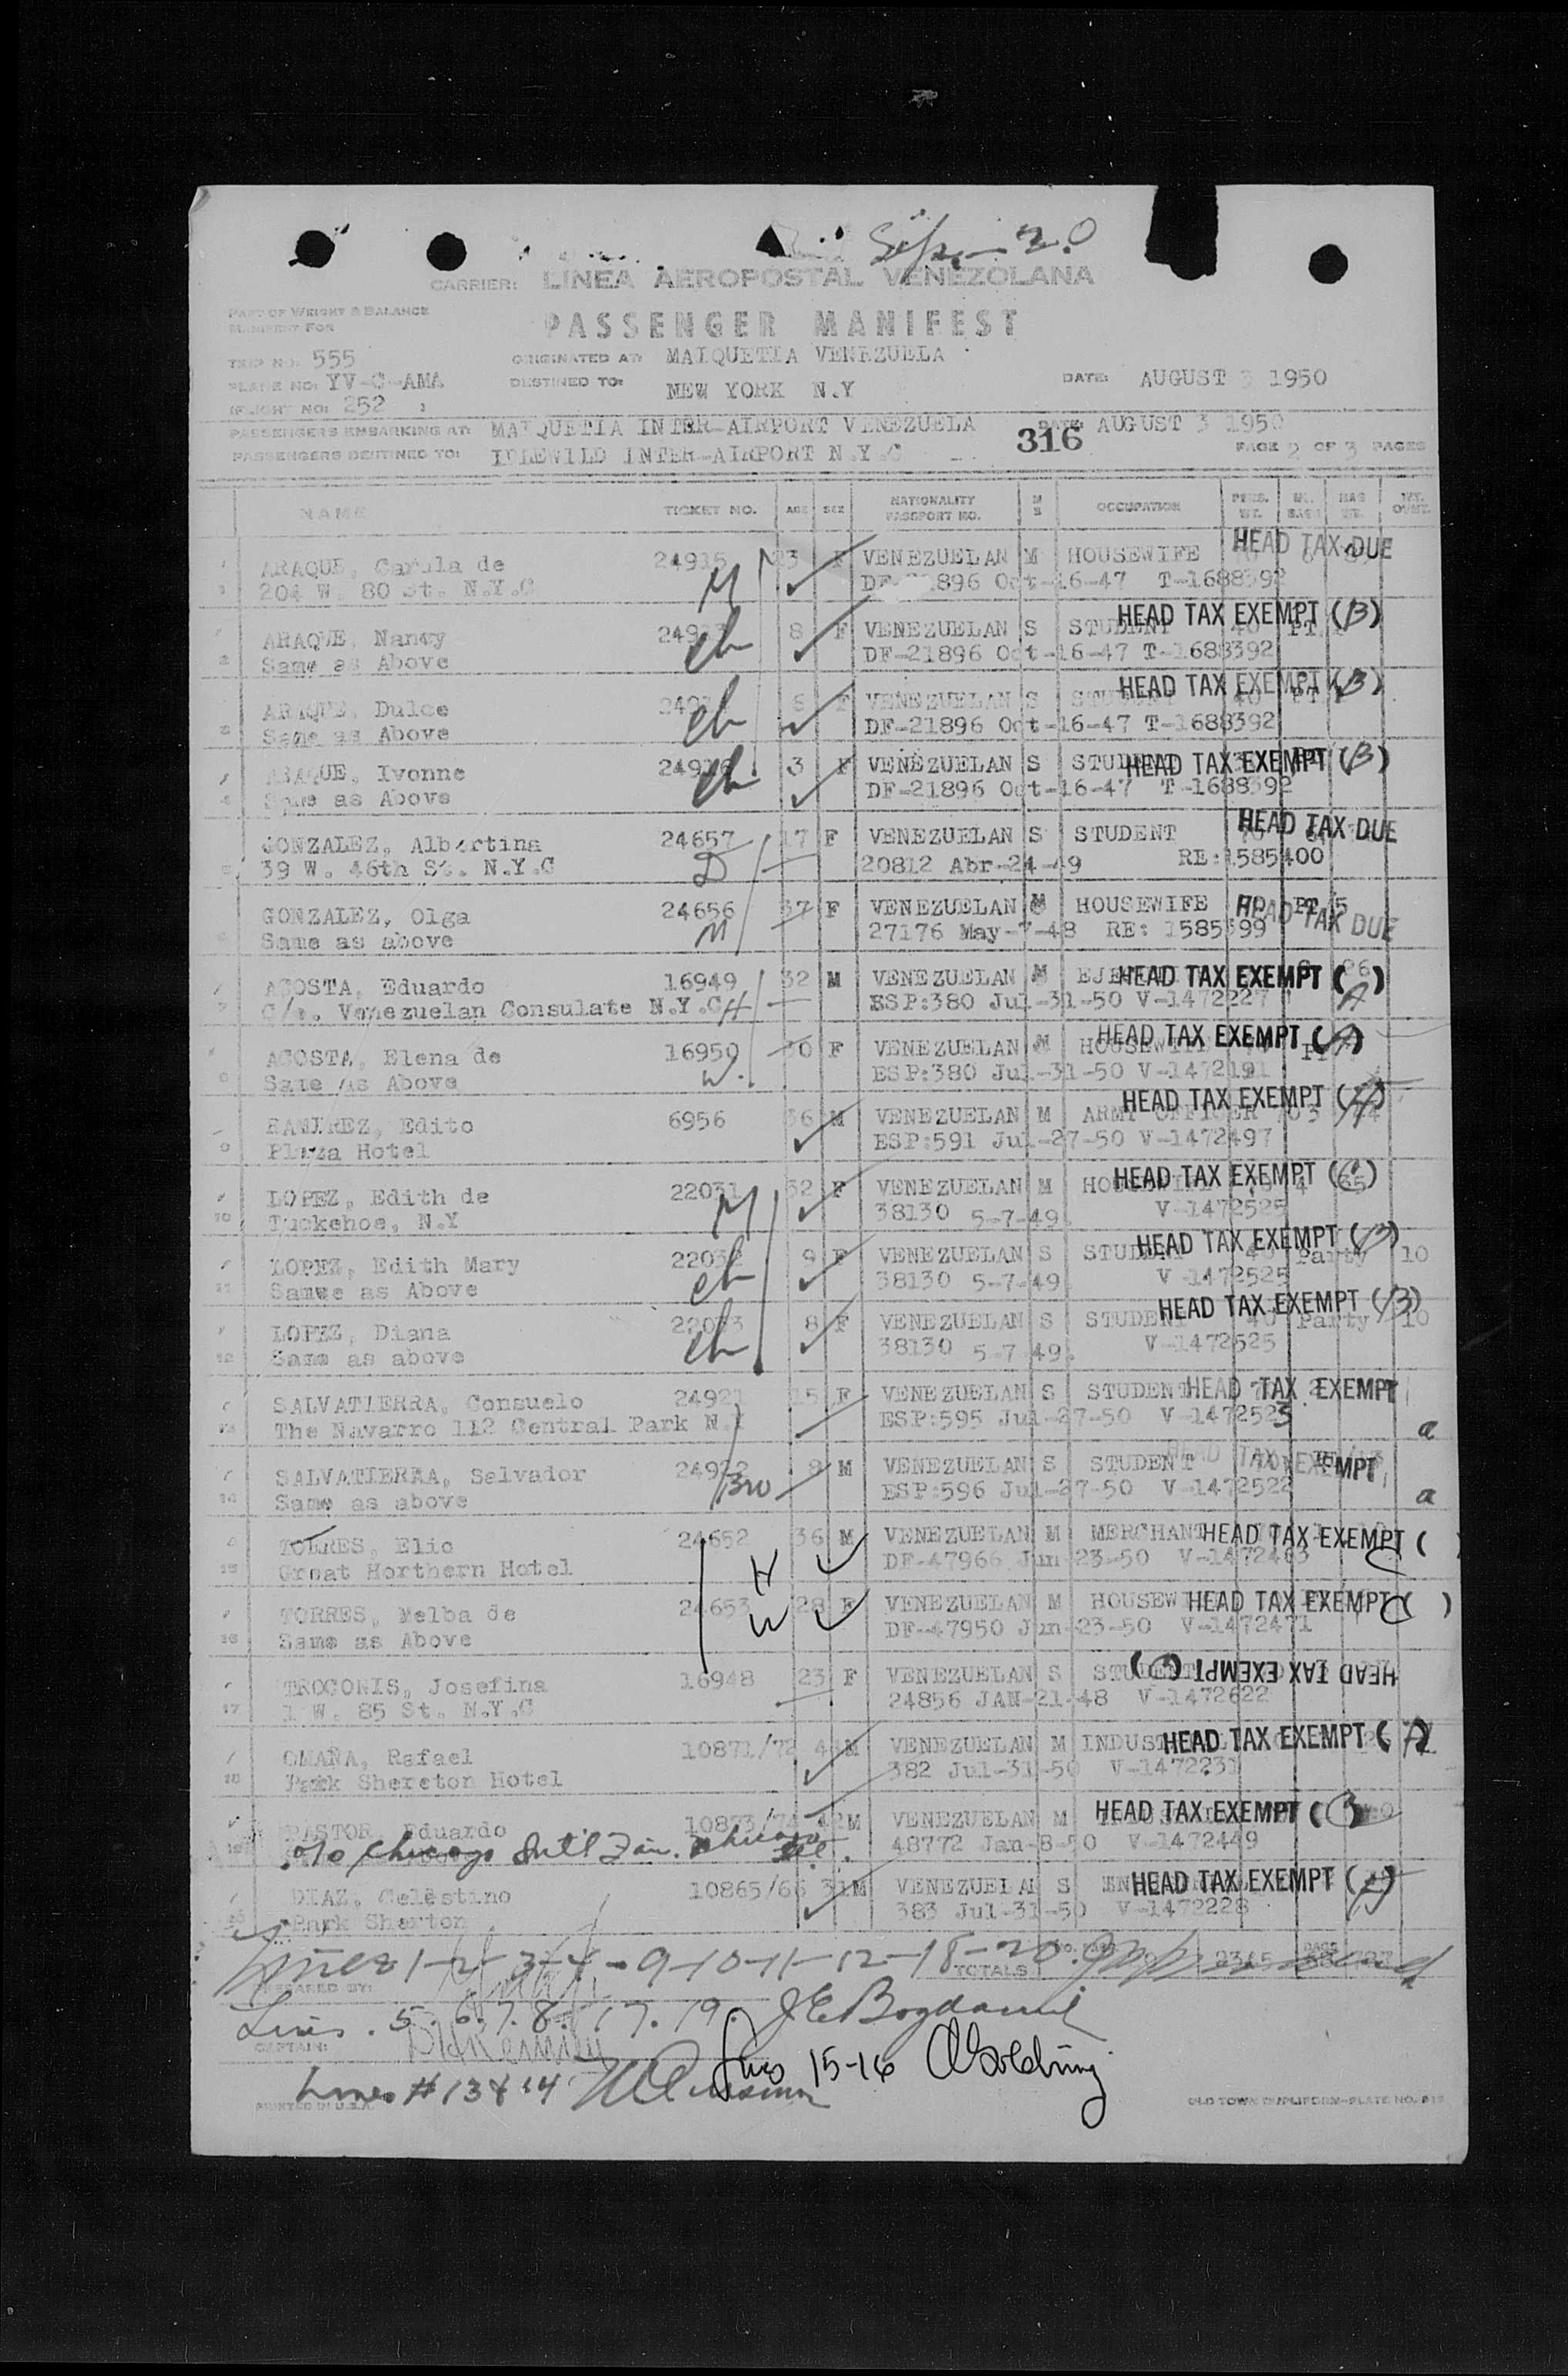 Sep. - 20
CARRIER: LINEA AEROPOSTAL VENEZOLANA
PART OF WEIGHT & BALANCE
MANIFEST FOR
PASSENGER MANIFEST
TRIP NO: 555 ORIGINATED AT: MAIQUETIA VENEZUELA
PLANE NO: YV-C-AMA DESTINED TO: NEW YORK N.Y DATE: AUGUST 3 1950
(FLIGHT NO: 252 )
PASSENGERS EMBARKING AT: MAIQUETIA INTER-AIRPORT VENEZUELA 316 DATE: AUGUST 3 1950
PASSENGERS DESTINED TO: IDLEWILD INTER-AIRPORT N.Y.C PAGE 2 OF 3 PAGES
NAME TICKET NO. AGE SEX NATIONALITY PASSPORT NO. M S OCCUPATION
1 ARAQUE, Carula de 24915 M 23 F VENEZUELAN M HOUSEWIFE HEAD TAX DUE
204 W. 80 St. N.Y.C 1896 Oct-16-47 T-1688392
2 ARAQUE, Nancy ch 8 F VENEZUELAN S STUDENT 40 PT. HEAD TAX EXEMPT (B)
Same as Above DF-21896 Oct-16-47 T-1688392
3 ARAQUE, Dulce ch 6 F VENEZUELAN S STUDENT 40 PT. HEAD TAX EXEMPT (B)
Same as Above DF-21896 Oct-16-47 T-1688392
4 ARAQUE, Ivonne 24916 ch 3 F VENEZUELAN S STUDENT HEAD TAX EXEMPT (B)
Same as Above DF-21896 Oct-16-47 T-1688392
5 GONZALEZ, Albertina 24657 D 17 F VENEZUELAN S STUDENT HEAD TAX DUE
39 W. 46th St. N.Y.C 20812 Abr-24-49 RE:1585400
6 GONZALEZ, Olga 24656 M 37 F VENEZUELAN M HOUSEWIFE HEAD TAX DUE
Same as above 27176 May-7-48 RE: 1585399
7 ACOSTA, Eduardo 16949 32 M VENEZUELAN M HEAD TAX EXEMPT (A)
C/o. Venezuelan Consulate N.Y.C H ESP:380 Jul-31-50 V-1472227
8 ACOSTA, Elena de 16950 W. 30 F VENEZUELAN M HOUSEWIFE HEAD TAX EXEMPT (A)
Same As Above ESP:380 Jul-31-50 V-1472191
9 RAMIREZ, Edito 6956 36 M VENEZUELAN M ARMY OFFICER HEAD TAX EXEMPT
Plaza Hotel ESP:591 Jul-27-50 V-1472497
10 LOPEZ, Edith de 22031 M 32 F VENEZUELAN M HOUSEWIFE HEAD TAX EXEMPT
Tuckehoe, N.Y 38130 5-7-49. V-1472525
11 LOPEZ, Edith Mary 22032 ch 9 F VENEZUELAN S STUDENT 40 Party 10 HEAD TAX EXEMPT (B)
Samwe as Above 38130 5-7-49. V-1472525
12 LOPEZ, Diana 22033 ch 8 F VENEZUELAN S STUDENT 40 Party 10 HEAD TAX EXEMPT (B)
Same as above 38130 5-7-49. V-1472525
13 SALVATIERRA, Consuelo 24921 15 F VENEZUELAN S STUDENT HEAD TAX EXEMPT
The Navarro 112 Central Park N.Y ESP:595 Jul-27-50 V-1472523 a
14 SALVATIERRA, Salvador 24922 Bro 8 M VENEZUELAN S STUDENT HEAD TAX EXEMPT
Same as above ESP:596 Jul-27-50 V-1472522 a
15 TORRES, Elio 24652 H 36 M VENEZUELAN M MERCHANT HEAD TAX EXEMPT (C)
Great Horthern Hotel DF-47966 Jun-23-50 V-1472463
16 TORRES, Melba de 24653 W 28 F VENEZUELAN M HOUSEW HEAD TAX EXEMPT (C)
Same as Above DF-47950 Jun-23-50 V-1472471
17 TROCONIS, Josefina 16948 23 F VENEZUELAN S STUDENT HEAD TAX EXEMPT
1 W. 85 St. N.Y.C 24856 JAN-21-48 V-1472622
18 OMAÑA, Rafael 10871/72 M VENEZUELAN M INDUST HEAD TAX EXEMPT (A)
Park Shereton Hotel 382 Jul-31-50 V-1472231
19 PASTOR, Eduardo 10873/74 42 M VENEZUELAN M HEAD TAX EXEMPT (B)
c/o Chicago Int'l Fair. Chicago Ill. 48772 Jan-8-50 V-1472449
20 DIAZ, Celestino 10865/66 31 M VENEZUELA S HEAD TAX EXEMPT
Park Sharton 383 Jul-31-50 V-1472228
Lines 1-2-3-4-9-10-11-12-18-20
TOTALS
PREPARED BY:
Lines. 5. 6. 7. 8. 17. 19. J E Bogdanul
CAPTAIN:
Lines 15-16
Lines # 13 & 14
PRINTED IN U.S.A.